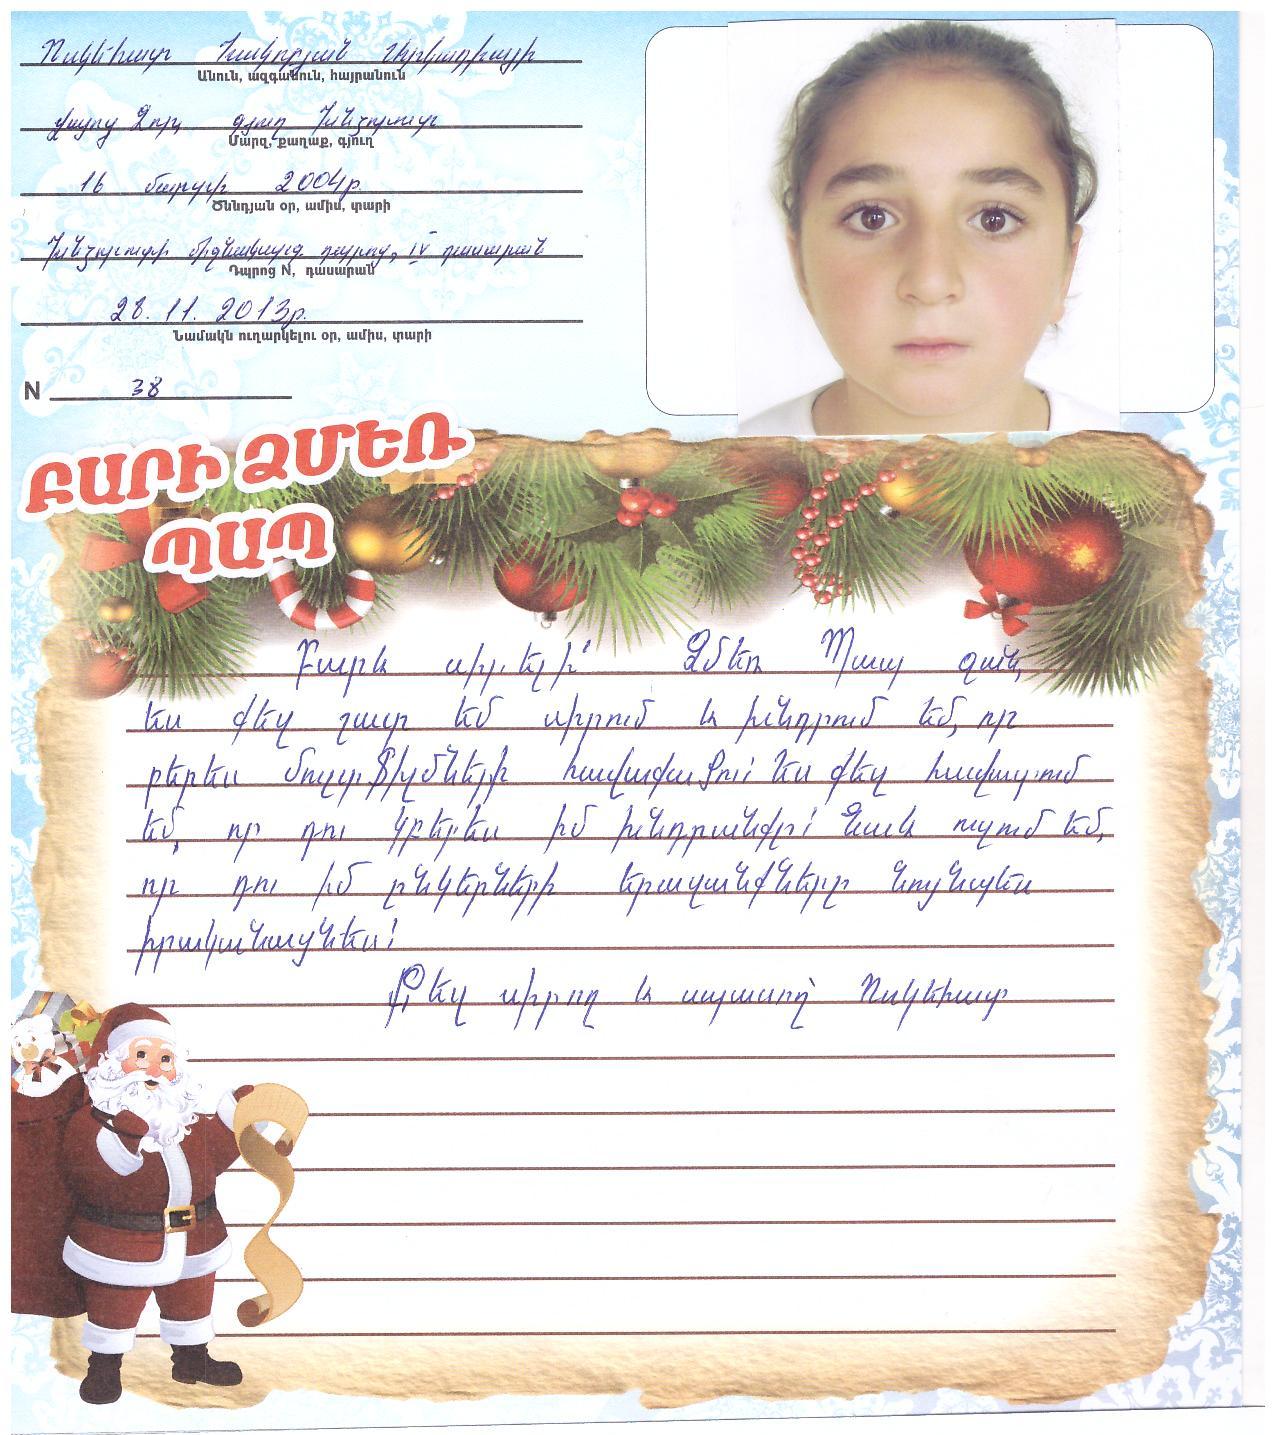 Ոսկեհատ Հակոբյան
Անուն, ազգանուն, հայրանուն
Վայոց Ձոր, գյուղ Խնձորուտ
Մարզ, քաղաք, գյուղ
16 մարտի 2004թ.
Ծննդյան օր, ամիս, տարի
Խնձորուտի միջնակարգ դպրոց, IV դասարան
Դպրոց N, դասարան
28. 11. 2013թ.
Նամակն ուղարկելու օր, ամիս, տարի
N 38
ԲԱՐԻ ՁՄԵՌ
ՊԱՊ
Բարև սիրելի՛ Ձմեռ Պապ ջան,
ես քեզ շատ եմ սիրում և խնդրում եմ, որ
բերես մուլտֆիլմների հավաքածու։ Ես քեզ հավատում
եմ, որ դու կբերես իմ խնդրանքը։ Նաև ուզում եմ,
որ դու իմ ընկերների երազանքները նույնպես
իրականացնես։
Քեզ սիրող և սպասող՝ Ոսկեհատ